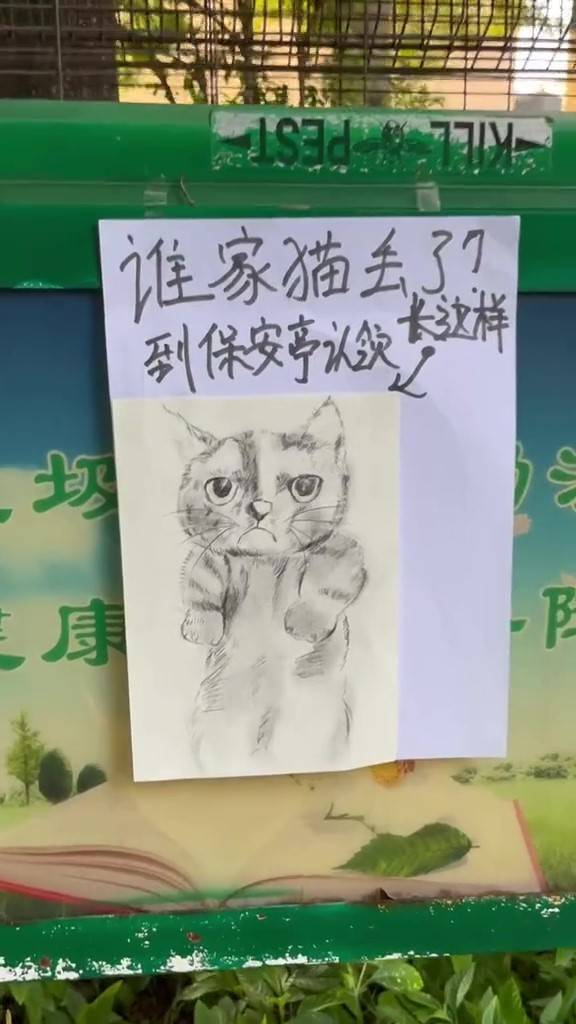 KILL PEST
谁家猫丢了?
到保安亭认领
长这样
圾
康